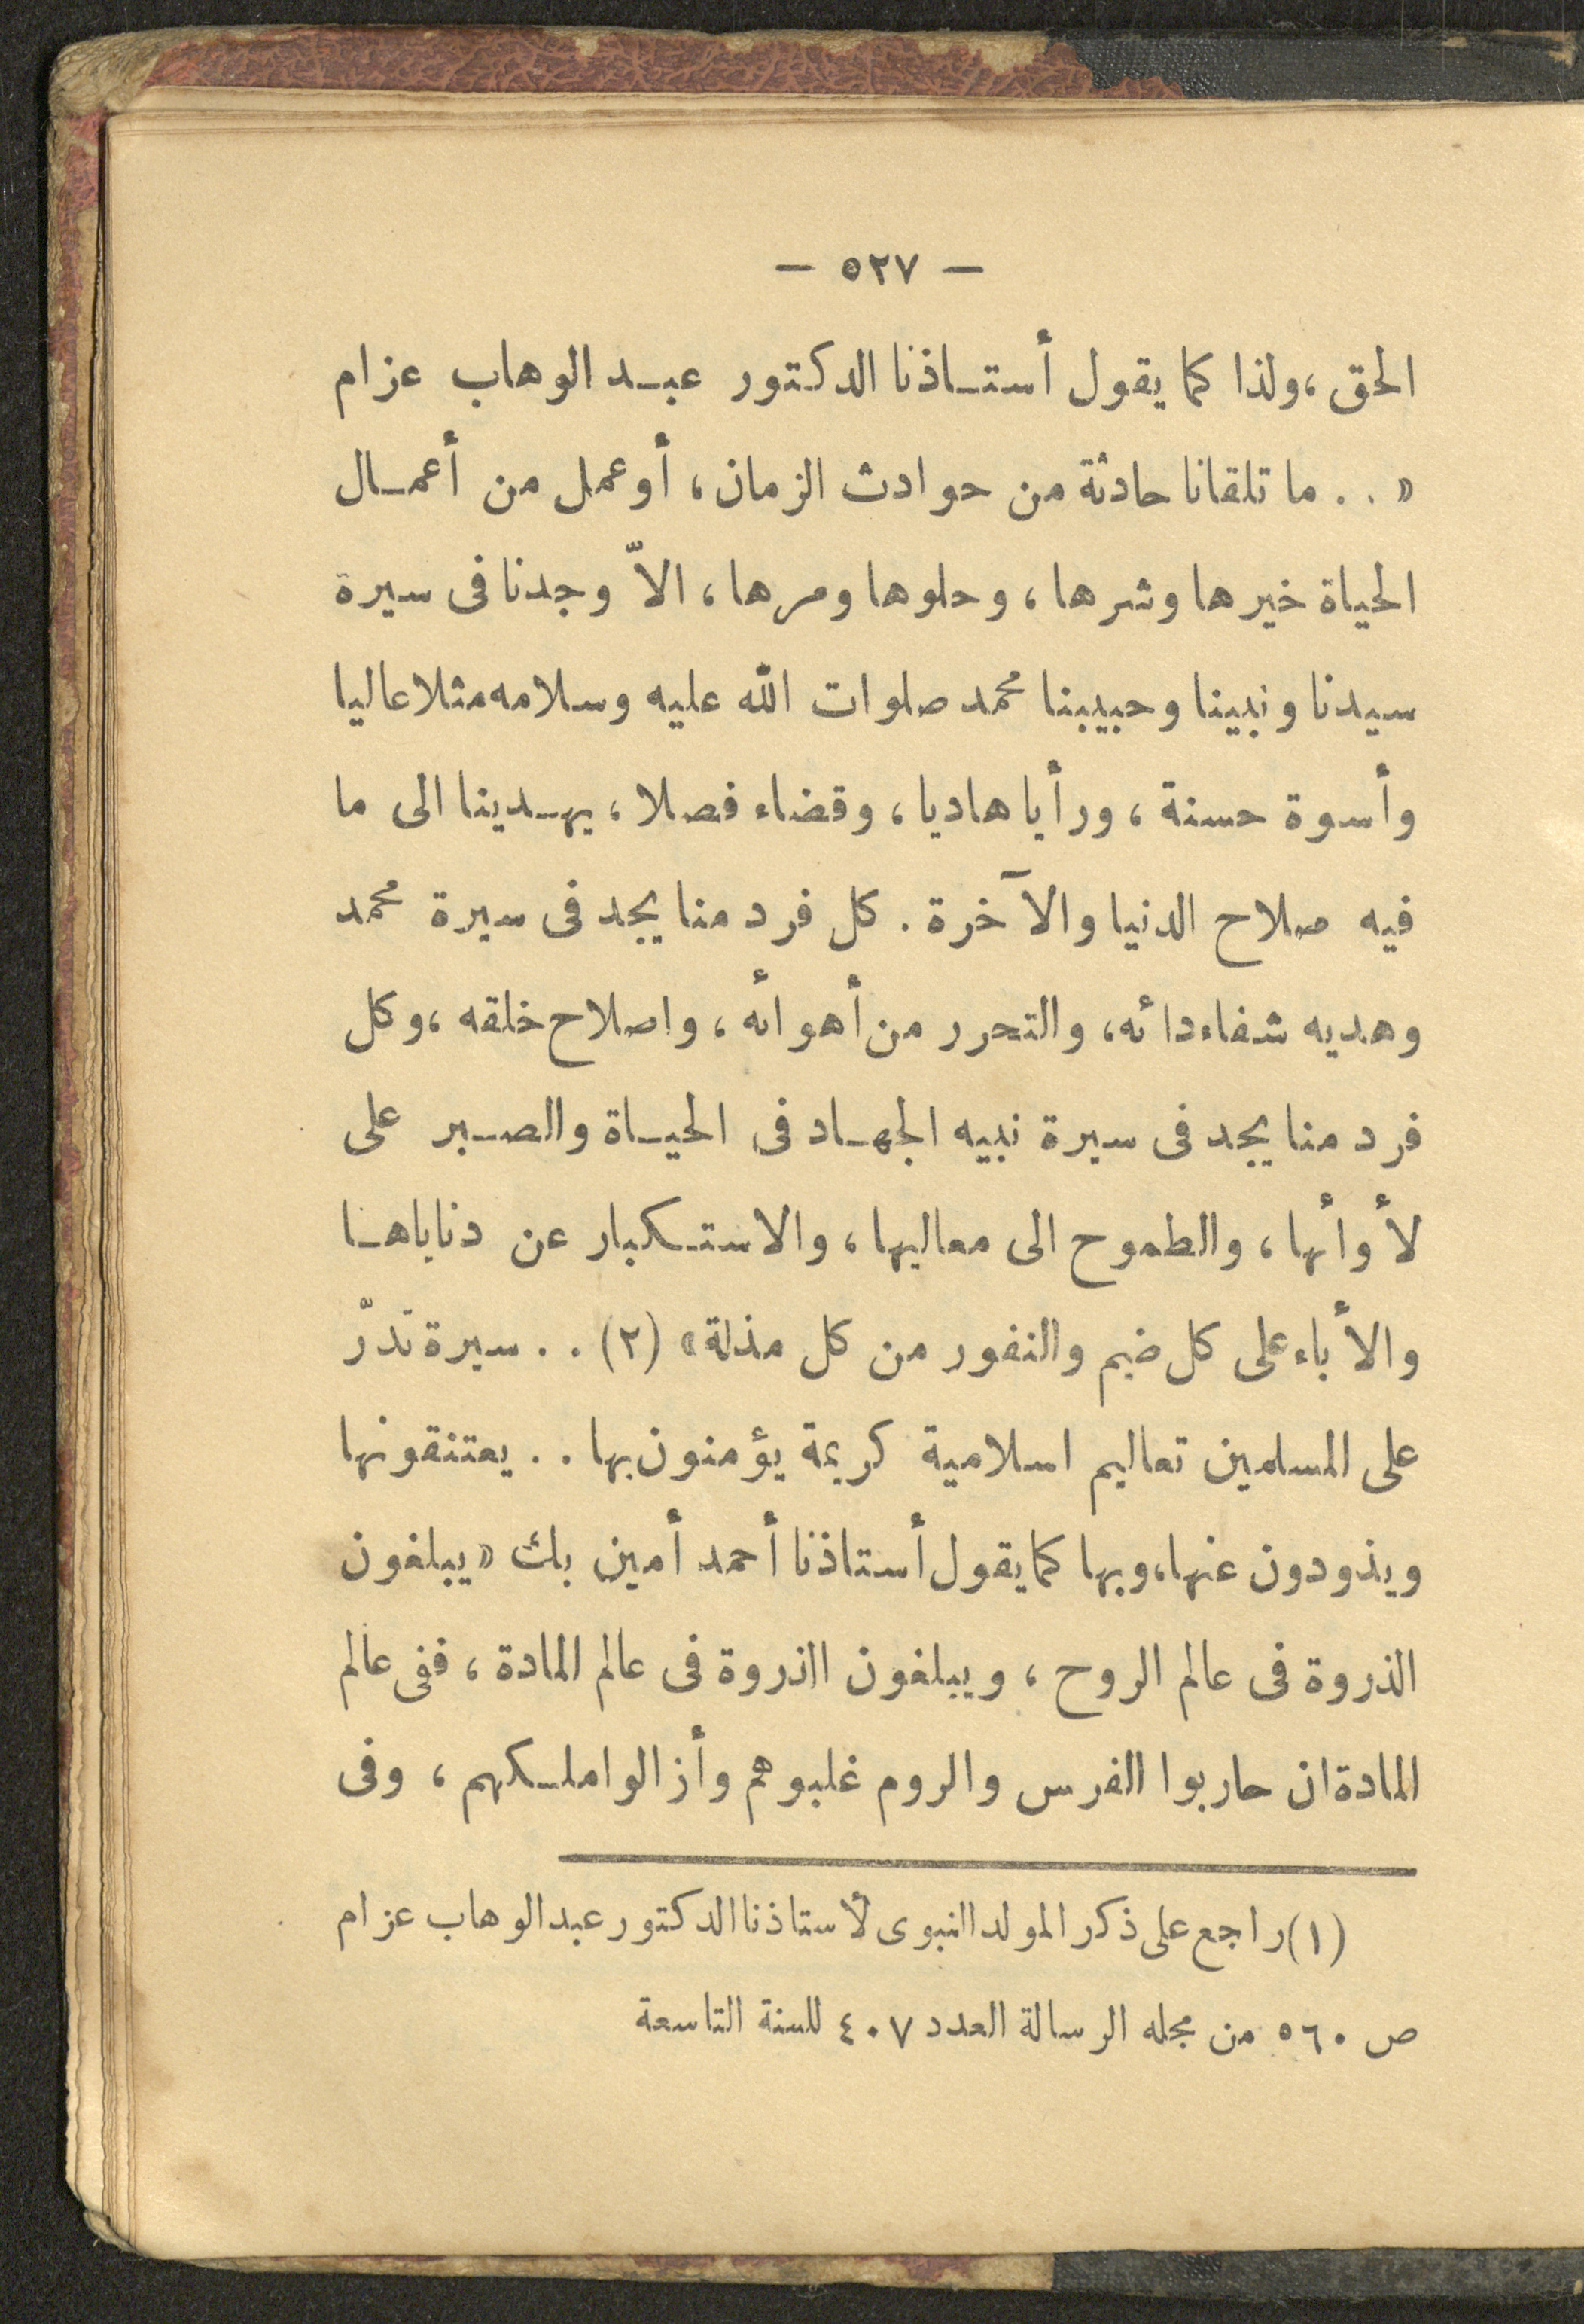 — ٥٢٧ —
الحق ، ولذا كما يقول أستـاذنا الدكتور عبـد الوهاب عزام
« . . ما تلقانا حادثة من حوادث الزمان ، أو عمل من أعمـال
الحياة خيرها وشرها ، وحلوها ومرها ، الاّ وجدنا فى سيرة
سيدنا ونبينا وحبيبنا محمد صلوات الله عليه وسلامه مثلا عاليا
وأسوة حسنة ، ورأيا هاديا ، وقضاء فصلا ، يهـدينا الى ما
فيه صلاح الدنيا والآخرة . كل فرد منا يجد فى سيرة محمد
وهديه شفاء دائه ، والتحرر من أهوائه ، واصلاح خلقه ، وكل
فرد منا يجد فى سيرة نبيه الجهـاد فى الحيـاة والصـبر على
لأوأنها ، والطموح الى معاليها ، والاستـكبار عن دناياهـا
والأباء على كل ضيم والنفور من كل مذلة » (٢) . . سيرة تدرّ
على المسلمين تعاليم اسلامية كريمة يؤمنون بها . . يعتنقونها
ويذودون عنها ، وبها كما يقول أستاذنا أحمد أمين بك « يبلغون
الذروة فى عالم الروح ، ويبلغون الذروة فى عالم المادة ، ففى عالم
المادة ان حاربوا الفرس والروم غلبوهم وأزالوا ملـكهم ، وفى
(١) راجع على ذكر المولد النبوى لأستاذنا الدكتور عبد الوهاب عزام
ص ٥٦٠ من مجله الرسالة العدد ٤٠٧ للسنة التاسعة